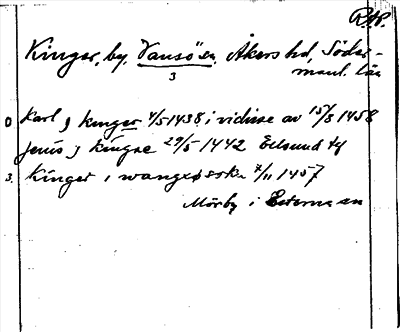 RAP.
Kinger, by, Vansö sn, Åkers hd, Söder-
3
manl. län
0 Karl j kinger 4/5 1438 i vidisse av 15/8 1458
jenis j kingæ 29/5 1442 Eslsund
3. Kinger i wangxø sokn 7/11 1457
Mörby i Esterna sn